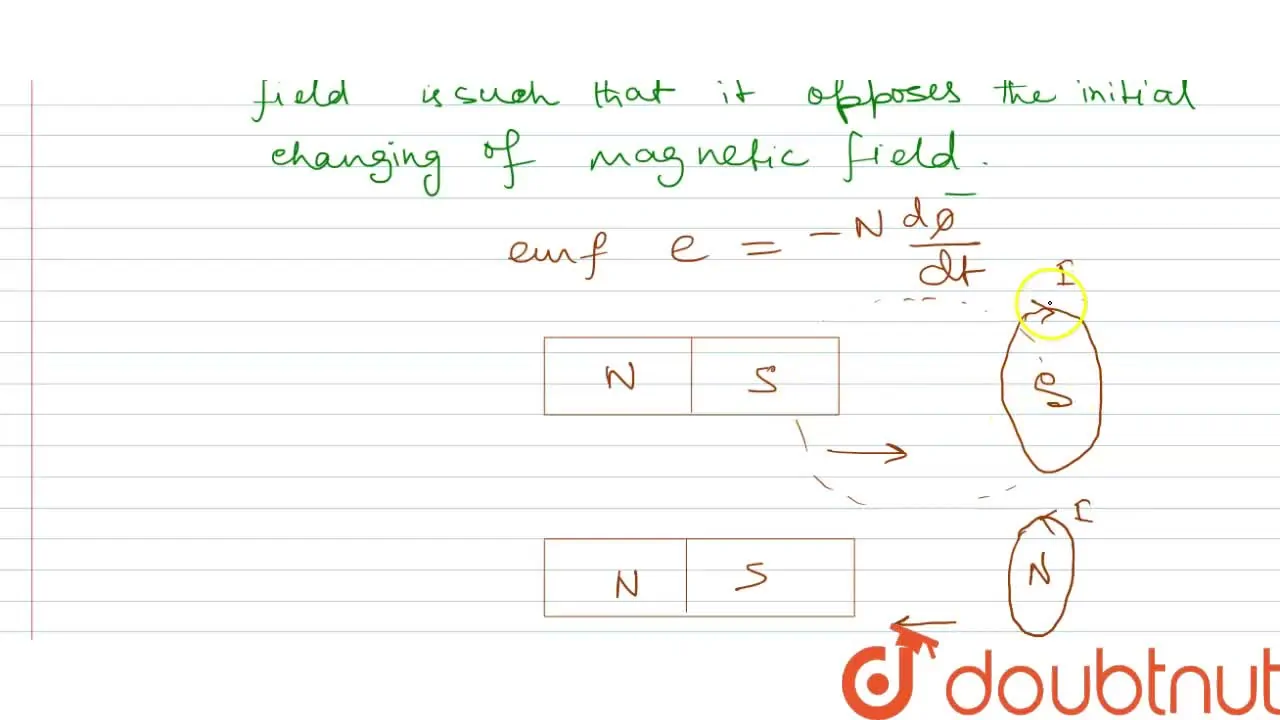 field is such that it opposes the initial
changing of magnetic field.
emf e = -N dφ/dt
I
N S S
I
N S N
doubtnut